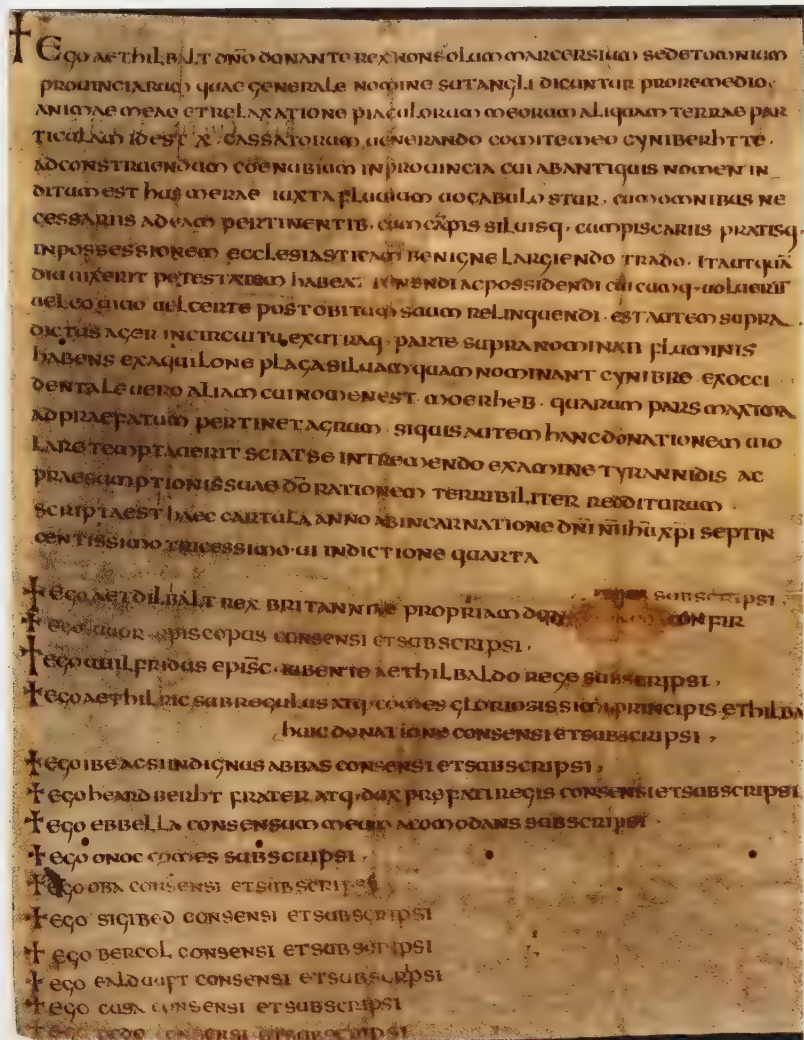 † Ego aethilbalt dño donante rex non solum marcersium sed et omnium
prouinciarum quae generale nomine sutangli dicuntur pro remedio ·
animae meae et relaxatione piaculorum meorum aliquam terrae par
ticulam id est x · cassatorum uenerando comite meo cyniberhtte ·
ad construendum coenubium in prouincia cui ab antiquis nomen in
ditum est husmerae iuxta fluuium uocabulo stur · cum omnibus ne
cessariis ad eam pertinentib · cum cāpis siluisq · cum piscariis pratisq ·
in possessionem ecclesiasticam benigne largiendo trado · ita ut quā
diu uixerit potestatem habeat tenendi ac possidendi cuicumq · uoluerit
uel eo uiuo uel certe post obitum suum relinquendi · est autem supra
dictus ager in circuitu ex utraq · parte supranominati fluminis
habens ex aquilone plaga siluam quam nominant cynibre · ex occi
dentale uero aliam cui nomen est moerheb · quarum pars maxima
ad praefatum pertinet agrum · siquis autem hanc donationem uio
lare temptauerit sciat se in tremendo examine tyrannidis ac
praesumptionis suae dō rationem terribiliter redditurum ·
scripta est haec cartula anno ab incarnatione dñi ñi ihū xpi septin
centissimo tricessimo · ui indictione quarta
† ego aetdilbalt rex britanniae propriam subscripsi ·
confir
† ego uuor episcopus consensi et subscripsi ·
† ego uuilfridus episc · iubente aethilbaldo rege subscripsi ·
† ego aethilric subregulus atq · comes gloriosissimi principis ethilba
huic donatione consensi et subscripsi ·
† ego ibe acsi indignus abbas consensi et subscripsi ·
† ego heardberht frater atq · dux prefati regis consensi et subscripsi
† ego ebbella consensum meum acomodans subscripsi ·
† ego onoc comes subscripsi ·
† ego oba consensi et subscripsi
† ego sigibed consensi et subscripsi
† ego bercol consensi et subscripsi
† ego ealduuft consensi et subscripsi
† ego cusa consensi et subscripsi
† ego pede consensi et subscripsi